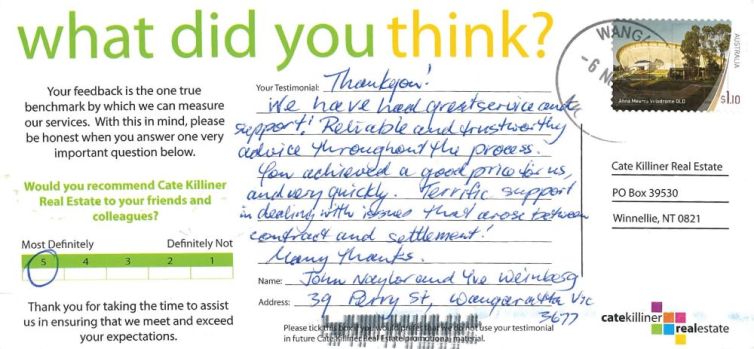 what did you think?
Your feedback is the one true
benchmark by which we can measure
our services. With this in mind, please
be honest when you answer one very
important question below.
Would you recommend Cate Killiner
Real Estate to your friends and
colleagues?
Most Definitely Definitely Not
5 4 3 2 1
Thank you for taking the time to assist
us in ensuring that we meet and exceed
your expectations.
Your Testimonial: Thankyou!
We have had great service and
support! Reliable and trustworthy
advice throughout the process.
You achieved a good price for us,
and very quickly. Terrific support
in dealing with issues that arose between
contract and settlement!
Many thanks.
Name: John Naylor and Yve Weinberg
Address: 39 Perry St, Wangaratta Vic
3677
Please tick this box if you would prefer that we do not use your testimonial
in future Cate Killiner Real Estate promotional material.
WANGA
-6 N
AUSTRALIA
Anna Meares Velodrome QLD
$1.10
Cate Killiner Real Estate
PO Box 39530
Winnellie, NT 0821
catekilliner
realestate